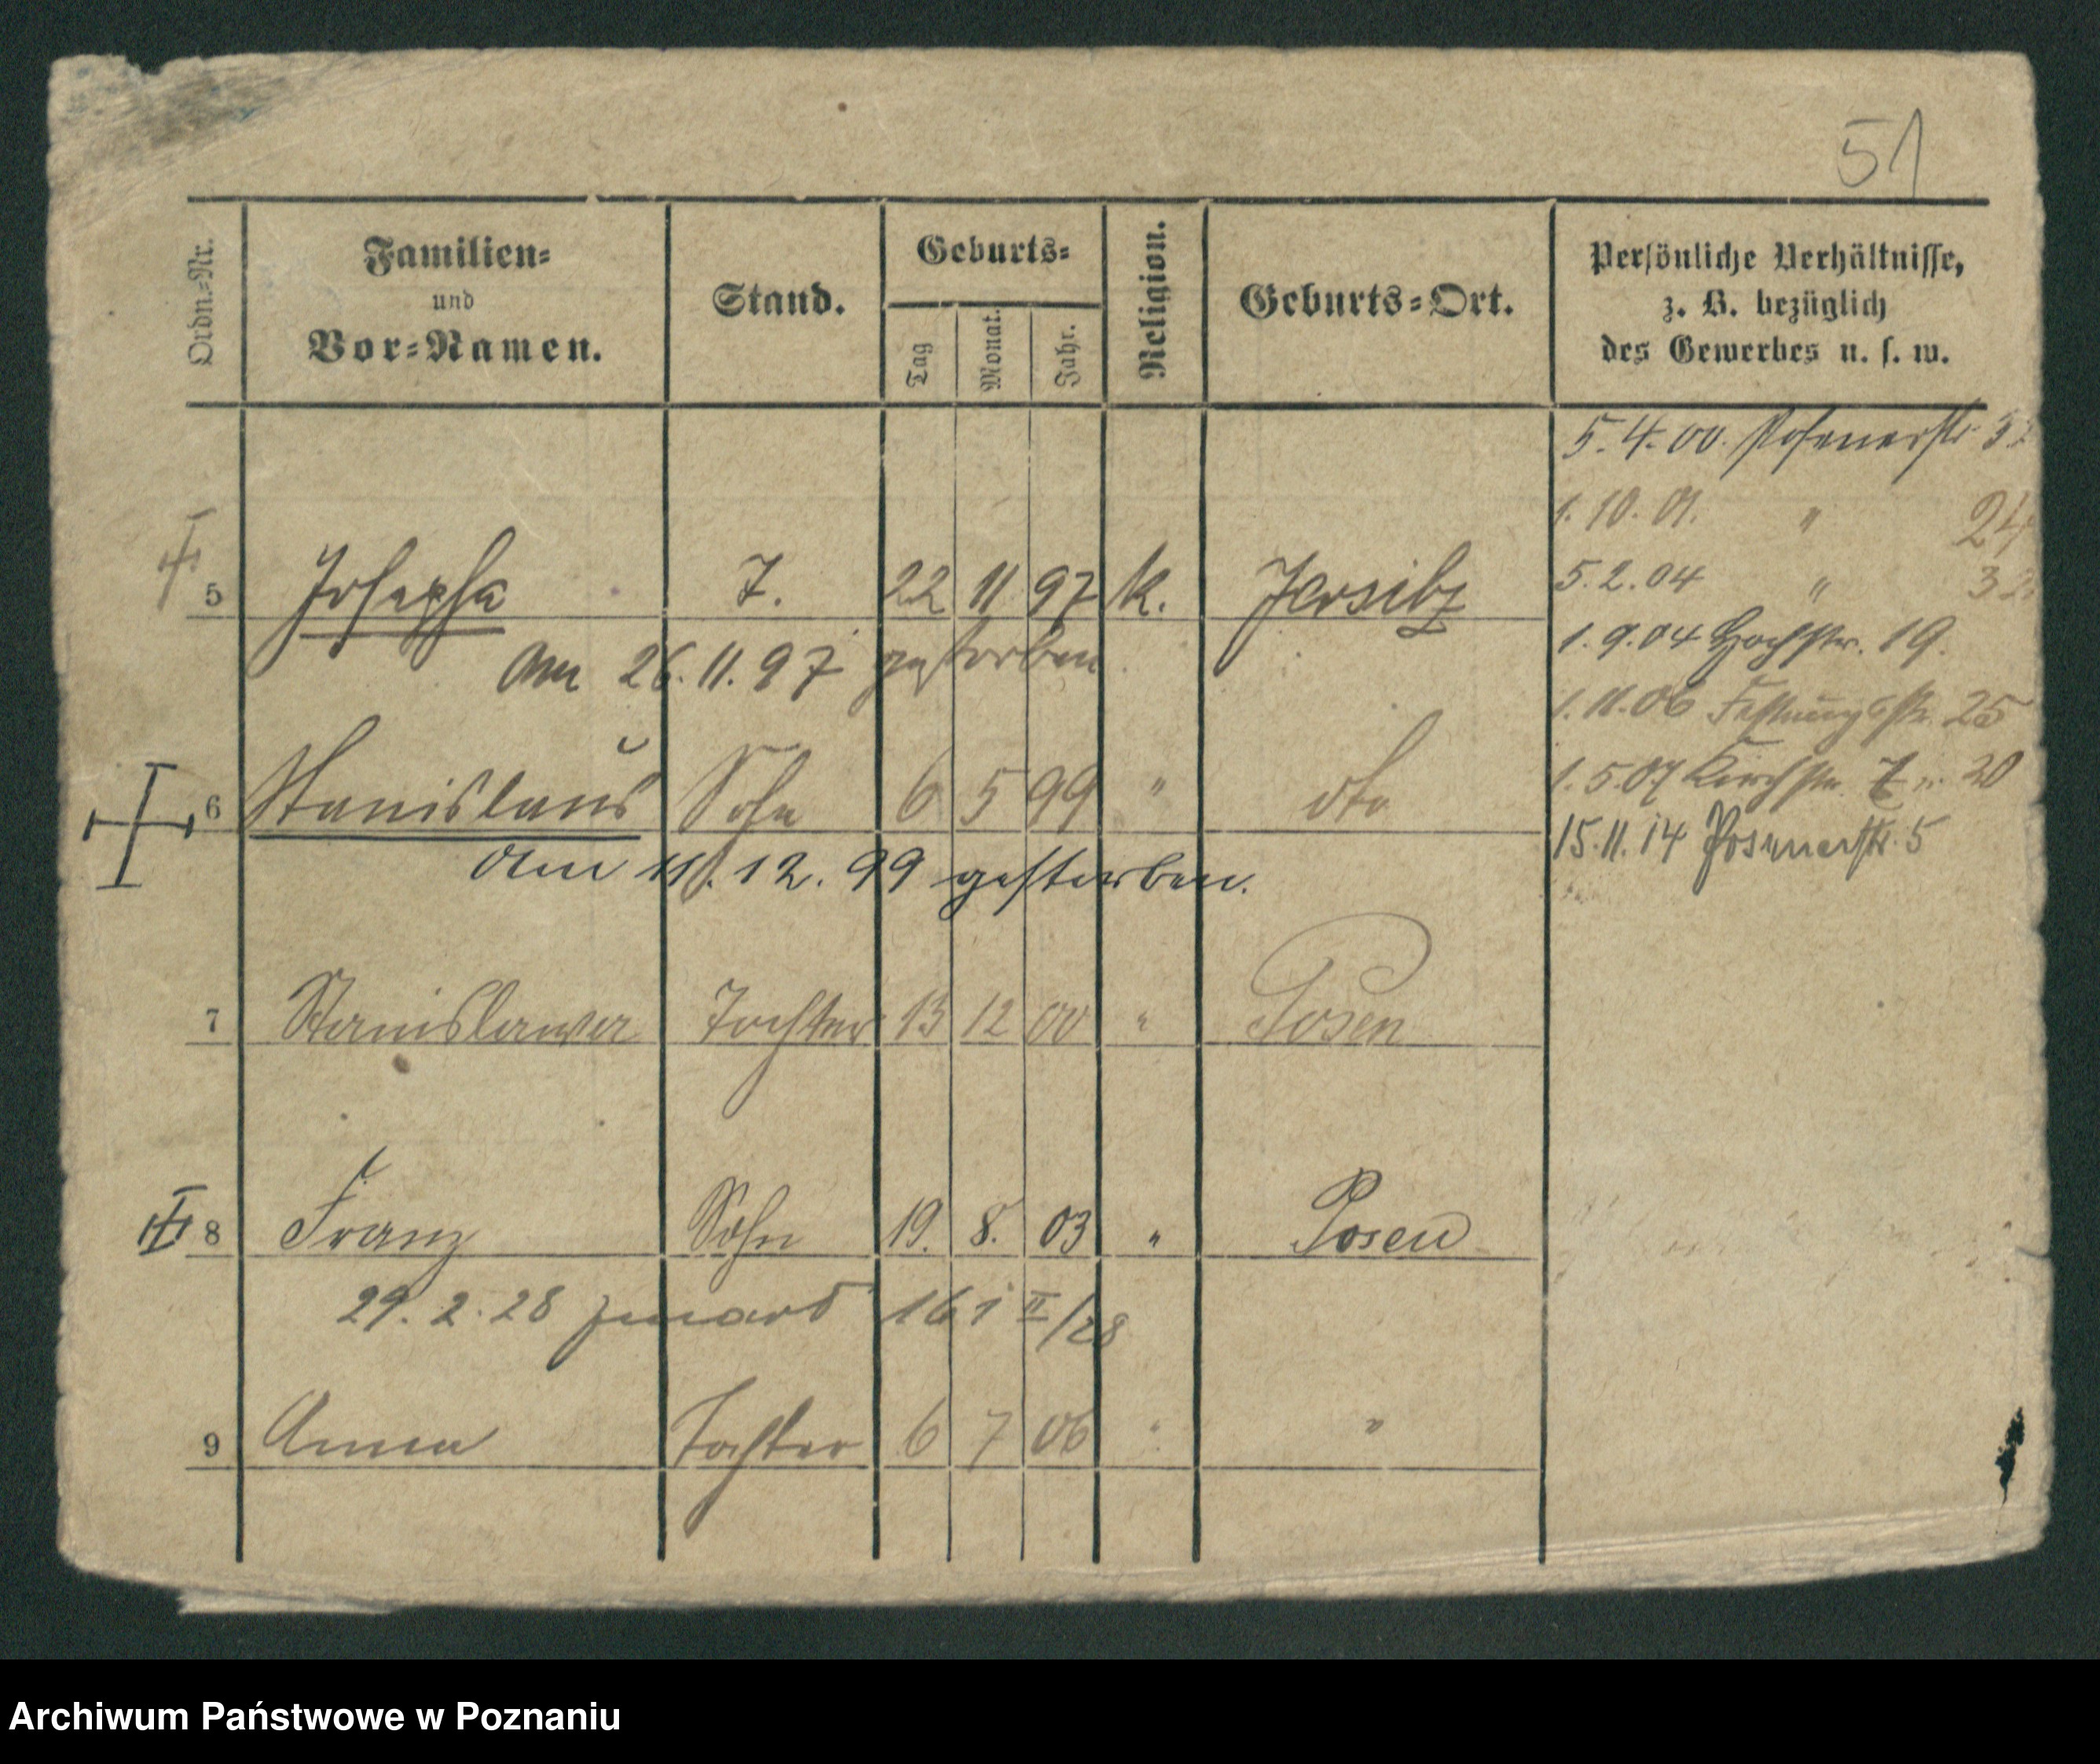 51
Ordn.-Nr.
Familien-
und
Vor-Namen.
Stand.
Geburts-
Tag
Monat.
Jahr.
Religion.
Geburts-Ort.
Persönliche Verhältnisse,
z. B. bezüglich
des Gewerbes u. s. w.
5.4.00. Posenerstr. 32
1.10.01. " 24
5.2.04 " 32
1.9.04 Hochstr. 19.
1.11.06 Festungsstr. 25
1.5.07 Kirchstr. 20
15.11.14 Posenerstr. 5
5 Josepha T. 22 11 97 k. Jersitz
Am 26.11.97 gestorben
6 Stanislaus Sohn 6 5 99 " dto
Am 11.12.99 gestorben.
7 Stanislawa Tochter 13 12 00 " Posen
8 Franz Sohn 19. 8. 03 " Posen
29.2.28 zmarł 161 II/28
9 Anna Tochter 6 7 06 " "
Archiwum Państwowe w Poznaniu